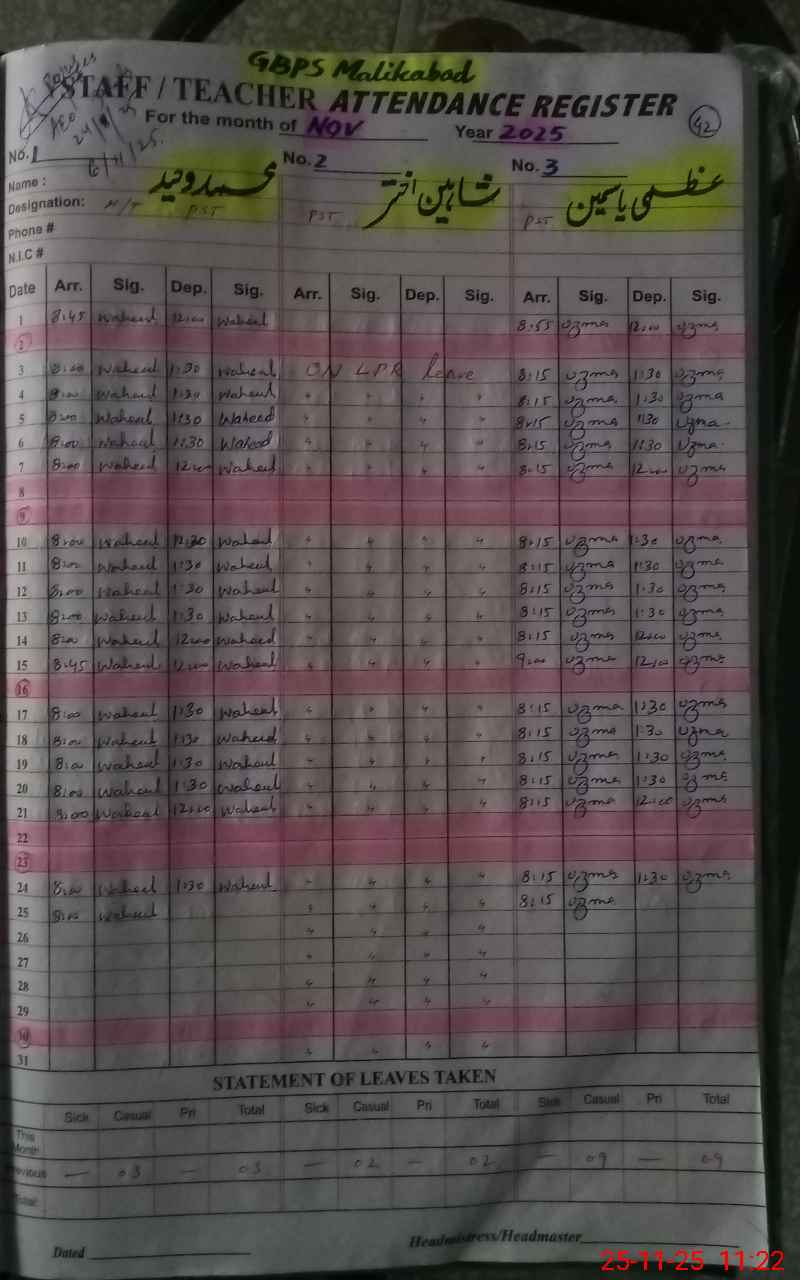 GBPS Malikabad
STAFF / TEACHER ATTENDANCE REGISTER
For the month of NOV Year 2025 42
No. 1 No. 2 No. 3
Name : محمد وحید شاہین اختر عظمیٰ یاسمین
Designation: PST PST PST
Phone #
N.I.C #
Date Arr. Sig. Dep. Sig. Arr. Sig. Dep. Sig. Arr. Sig. Dep. Sig.
1 8:45 Waheed 12:00 Waheed 8:55 uzma 12:00 uzma
2
3 8:00 Waheed 1:30 Waheed ON LPR leave 8:15 uzma 1:30 uzma
4 8:00 Waheed 1:30 Waheed 〃 〃 〃 〃 8:15 uzma 1:30 uzma
5 8:00 Waheed 1:30 Waheed 〃 〃 〃 〃 8:15 uzma 1:30 uzma
6 8:00 Waheed 1:30 Waheed 〃 〃 〃 〃 8:15 uzma 1:30 uzma
7 8:00 Waheed 12:00 Waheed 〃 〃 〃 〃 8:15 uzma 12:00 uzma
8
9
10 8:00 Waheed 12:30 Waheed 〃 〃 〃 〃 8:15 uzma 1:30 uzma
11 8:00 Waheed 1:30 Waheed 〃 〃 〃 〃 8:15 uzma 1:30 uzma
12 8:00 Waheed 1:30 Waheed 〃 〃 〃 〃 8:15 uzma 1:30 uzma
13 8:00 Waheed 1:30 Waheed 〃 〃 〃 〃 8:15 uzma 1:30 uzma
14 8:00 Waheed 12:00 Waheed 〃 〃 〃 〃 8:15 uzma 12:00 uzma
15 8:45 Waheed 12:00 Waheed 〃 〃 〃 〃 9:00 uzma 12:00 uzma
16
17 8:00 Waheed 1:30 Waheed 〃 〃 〃 〃 8:15 uzma 1:30 uzma
18 8:00 Waheed 1:30 Waheed 〃 〃 〃 〃 8:15 uzma 1:30 uzma
19 8:00 Waheed 1:30 Waheed 〃 〃 〃 〃 8:15 uzma 1:30 uzma
20 8:00 Waheed 1:30 Waheed 〃 〃 〃 〃 8:15 uzma 1:30 uzma
21 8:00 Waheed 12:00 Waheed 〃 〃 〃 〃 8:15 uzma 12:00 uzma
22
23
24 8:00 Waheed 1:30 Waheed 〃 〃 〃 〃 8:15 uzma 1:30 uzma
25 8:00 Waheed 〃 〃 〃 〃 8:15 uzma
26 〃 〃 〃 〃
27 〃 〃 〃 〃
28 〃 〃 〃 〃
29 〃 〃 〃 〃
30
31 〃 〃 〃 〃
STATEMENT OF LEAVES TAKEN
Sick Casual Pri Total Sick Casual Pri Total Sick Casual Pri Total
This Month
Previous — 03 — 03 — 02 — 02 — 09 — 09
Total
Dated Headmistress/Headmaster
25-11-25 11:22